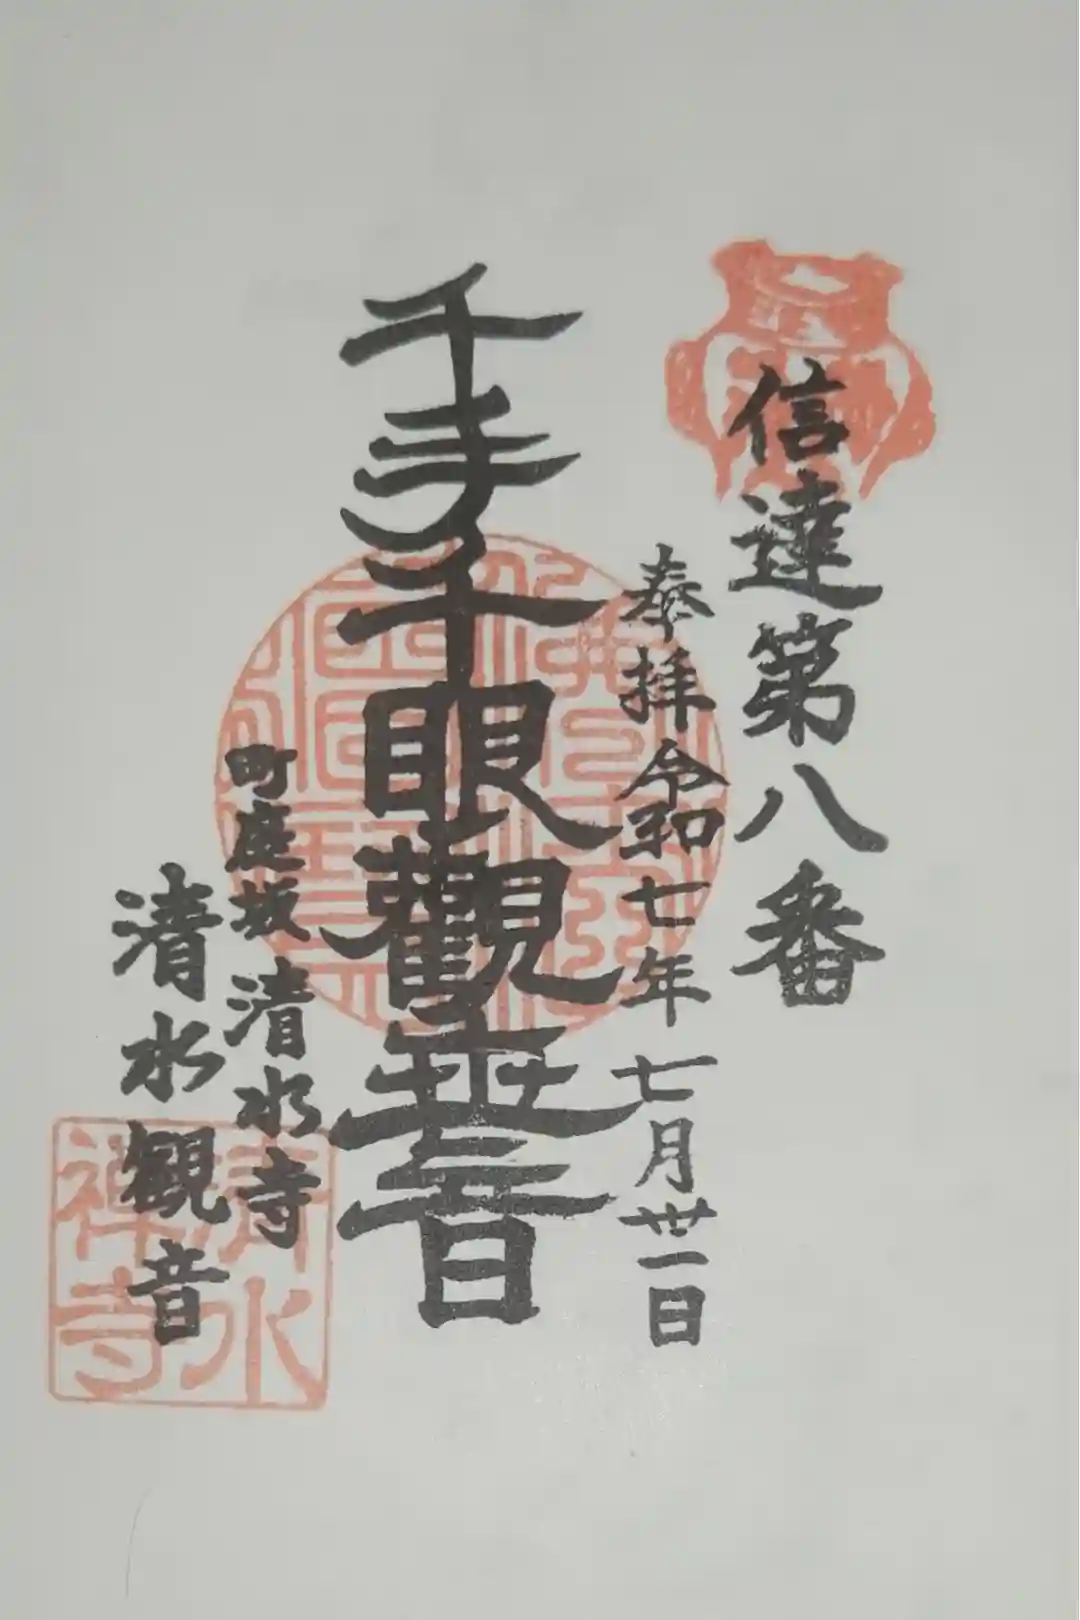 信達第八番
奉拝 令和七年 七月丗一日
千手千眼觀世音
町庭坂 清水寺
清水観音
清水
禪寺